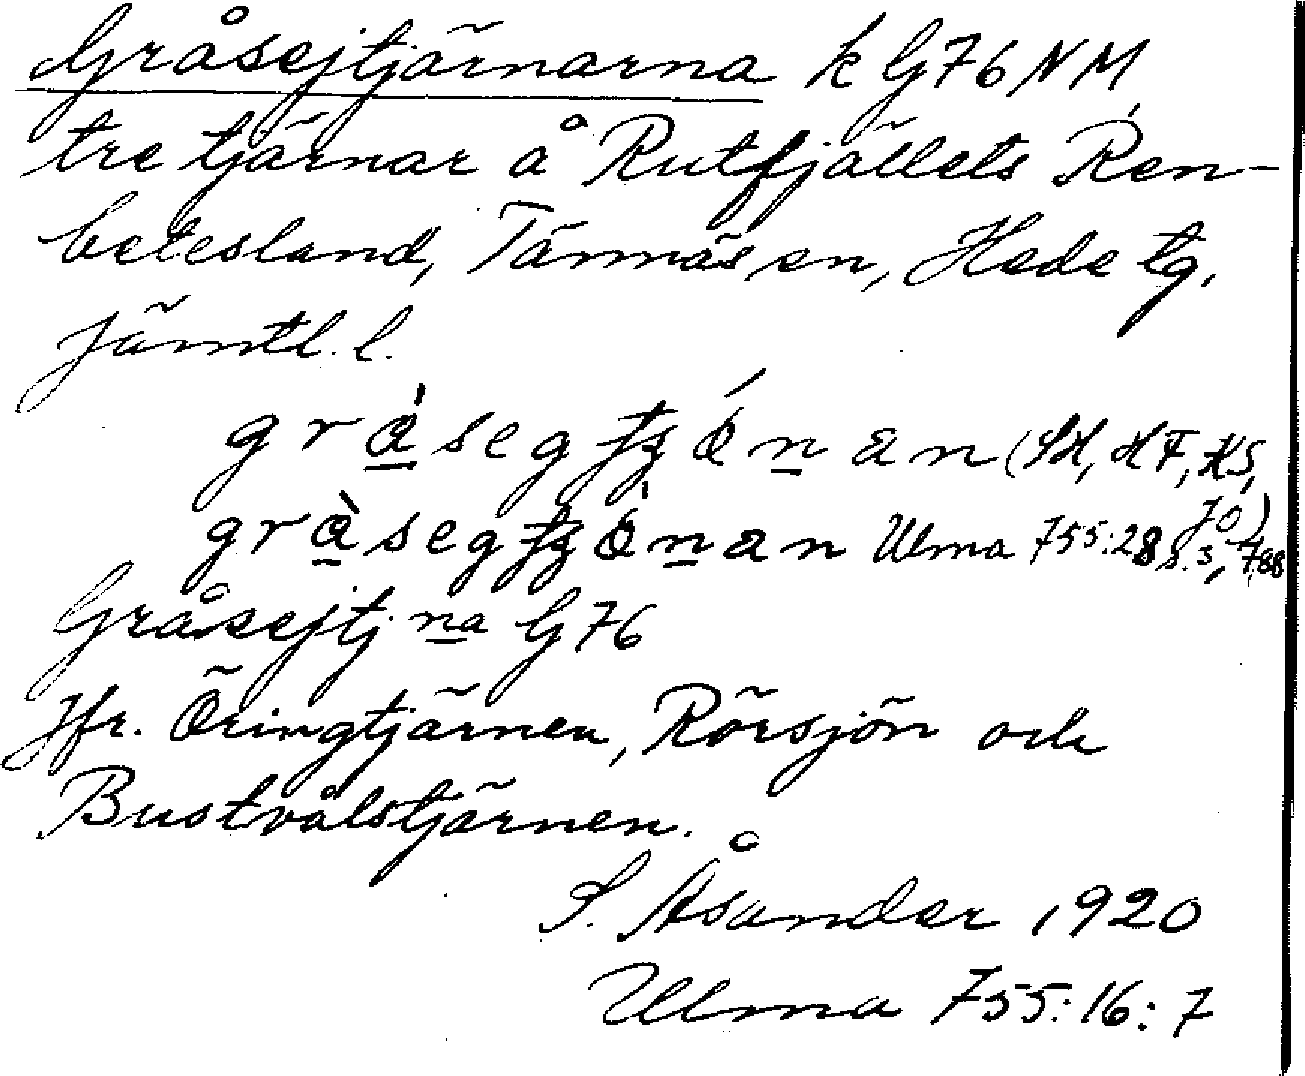 Gråsejtjärnarna k G76NM,
tre tjärnar å Rutfjällets Ren-
betesland, Tännäs sn, Hede tg,
Jämtl. l.
Ulma 755:28 s. 5, 788
Gråsejtjna G76
Jfr. Öringtjärnen, Rörsjön och
Bustvålstjärnen.
S. Åsander 1920
Ulma 755:16:7